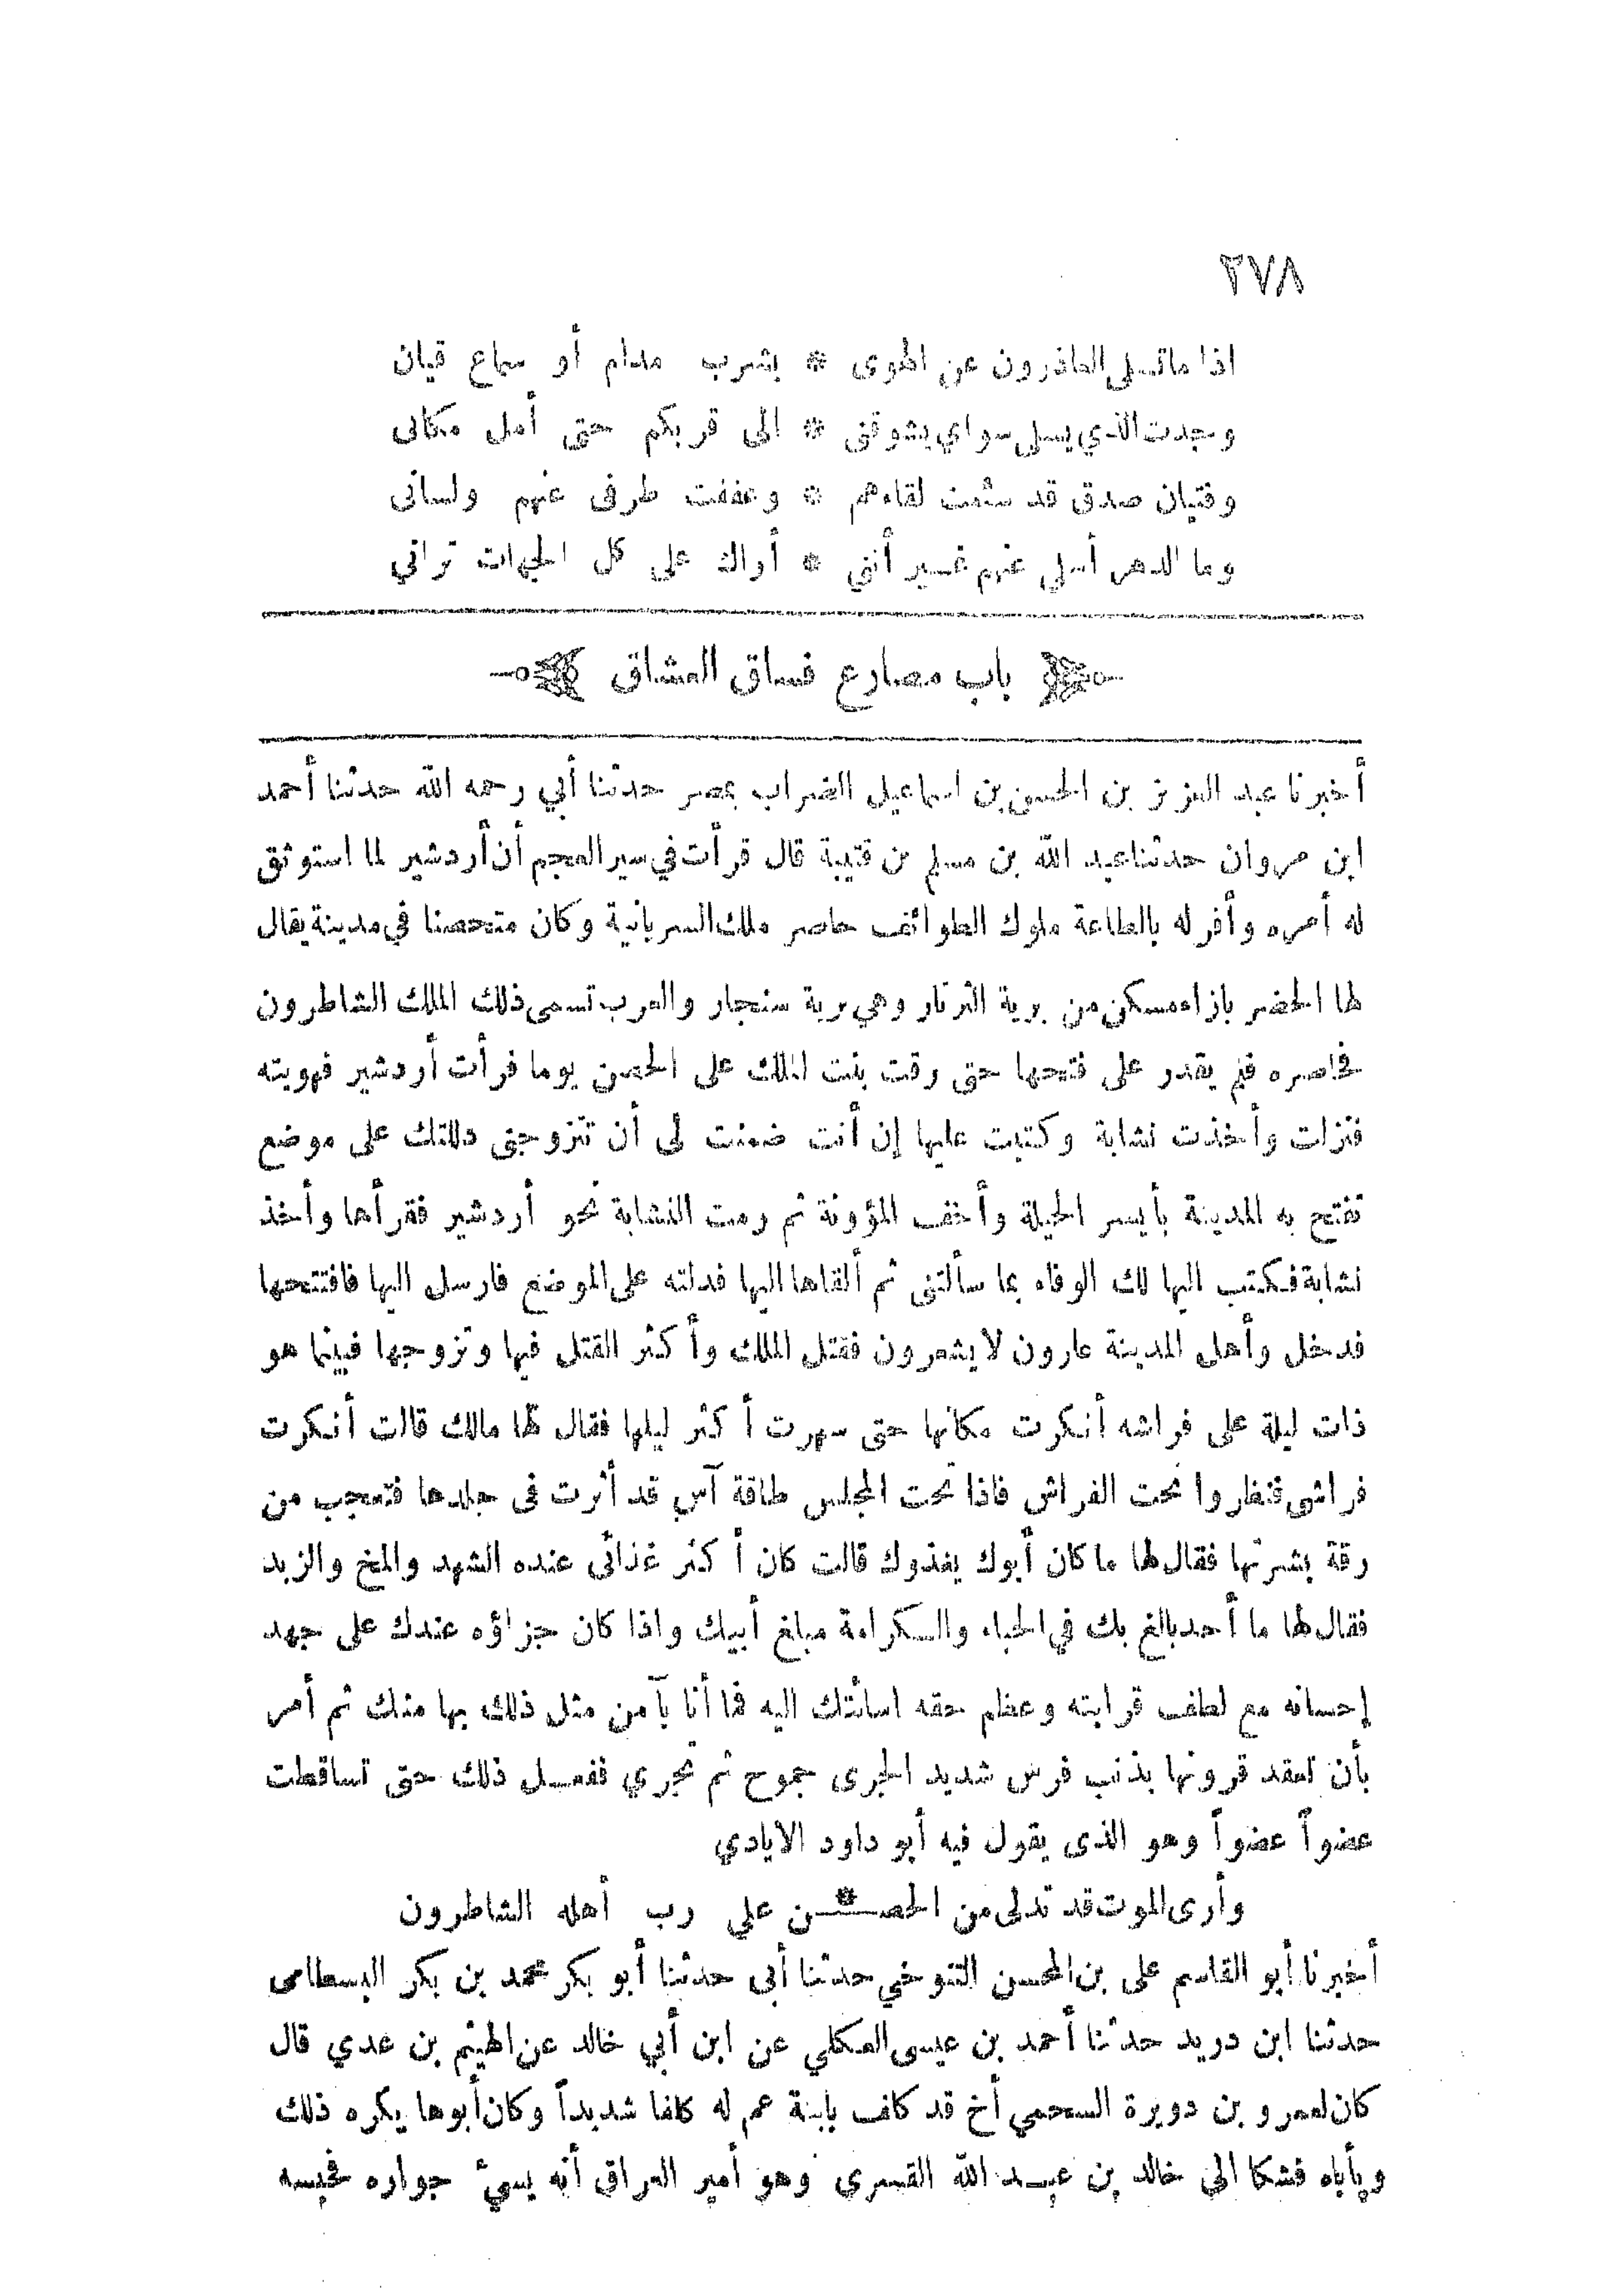 ٢٧٨
اذا ما تسلى العاذرون عن الهوى * بشرب مدام أو سماع قيان
وجدت الذي يسلي سواي يشوقنى * الى قربكم حتى أمل مكانى
وفتيان صدق قد سئمت لقاءهم * وعففت طرفى عنهم ولسانى
وما الدهر أسلى عنهم غير أننى * أراك على كل الجهات تراني
باب مصارع فساق العشاق
أخبرنا عبد العزيز بن الحسن بن اسماعيل الضراب بمصر حدثنا أبي رحمه الله حدثنا أحمد
ابن مروان حدثنا عبد الله بن مسلم بن قتيبة قال قرأت في سير العجم أن أردشير لما استوثق
له أمره وأقر له بالطاعة ملوك الطوائف حاصر ملك السريانية وكان متحصنا في مدينة يقال
لها الحضر بازاء مسكن من برية الثرثار وهي برية سنجار والعرب تسمى ذلك الملك الشاطرون
فحاصره فلم يقدر على فتحها حتى رقت بنت الملك على الحصن يوما فرأت أردشير فهويته
فنزلت وأخذت نشابة وكتبت عليها إن أنت ضمنت لى أن تتزوجنى دللتك على موضع
تفتح به المدينة بأيسر الحيلة وأخف المؤونة ثم رمت النشابة نحو أردشير فقرأها وأخذ
نشابة فكتب اليها لك الوفاء بما سألتنى ثم ألقاها اليها فدلته على الموضع فارسل اليها فافتتحها
فدخل وأهل المدينة عارون لا يشعرون فقتل الملك وأكثر القتل فيها وتزوجها فبينما هو
ذات ليلة على فراشه أنكرت مكانها حتى سهرت أكثر ليلها فقال لها مالك قالت أنكرت
فراشى فنظروا تحت الفراش فاذا تحت المجلس طاقة آس قد أثرت فى جلدها فتعجب من
رقة بشرتها فقال لها ما كان أبوك يغذوك قالت كان أكثر غذائى عنده الشهد والمخ والزبد
فقال لها ما أحد بالغ بك في الحباء والكرامة مبلغ أبيك واذا كان جزاؤه عندك على جهد
إحسانه مع لطف قرابته وعظم حقه اسائتك اليه فما أنا بآمن مثل ذلك بها منك ثم أمر
بأن تعقد قرونها بذنب فرس شديد الجرى جموح ثم تجري ففعل ذلك حتى تساقطت
عضواً عضواً وهو الذى يقول فيه أبو داود الايادي
وأرى الموت قد تدلى من الحصـ * ـن علي رب أهله الشاطرون
أخبرنا أبو القاسم على بن المحسن التنوخي حدثنا أبى حدثنا أبو بكر محمد بن بكر البسطامى
حدثنا ابن دريد حدثنا أحمد بن عيسى العكلي عن ابن أبي خالد عن الهيثم بن عدي قال
كان لعمرو بن دويرة السحمي أخ قد كلف بابنة عم له كلفا شديداً وكان أبوها يكره ذلك
ويأباه فشكا الى خالد بن عبد الله القسرى وهو أمير العراق أنه يسيء جواره فحبسه